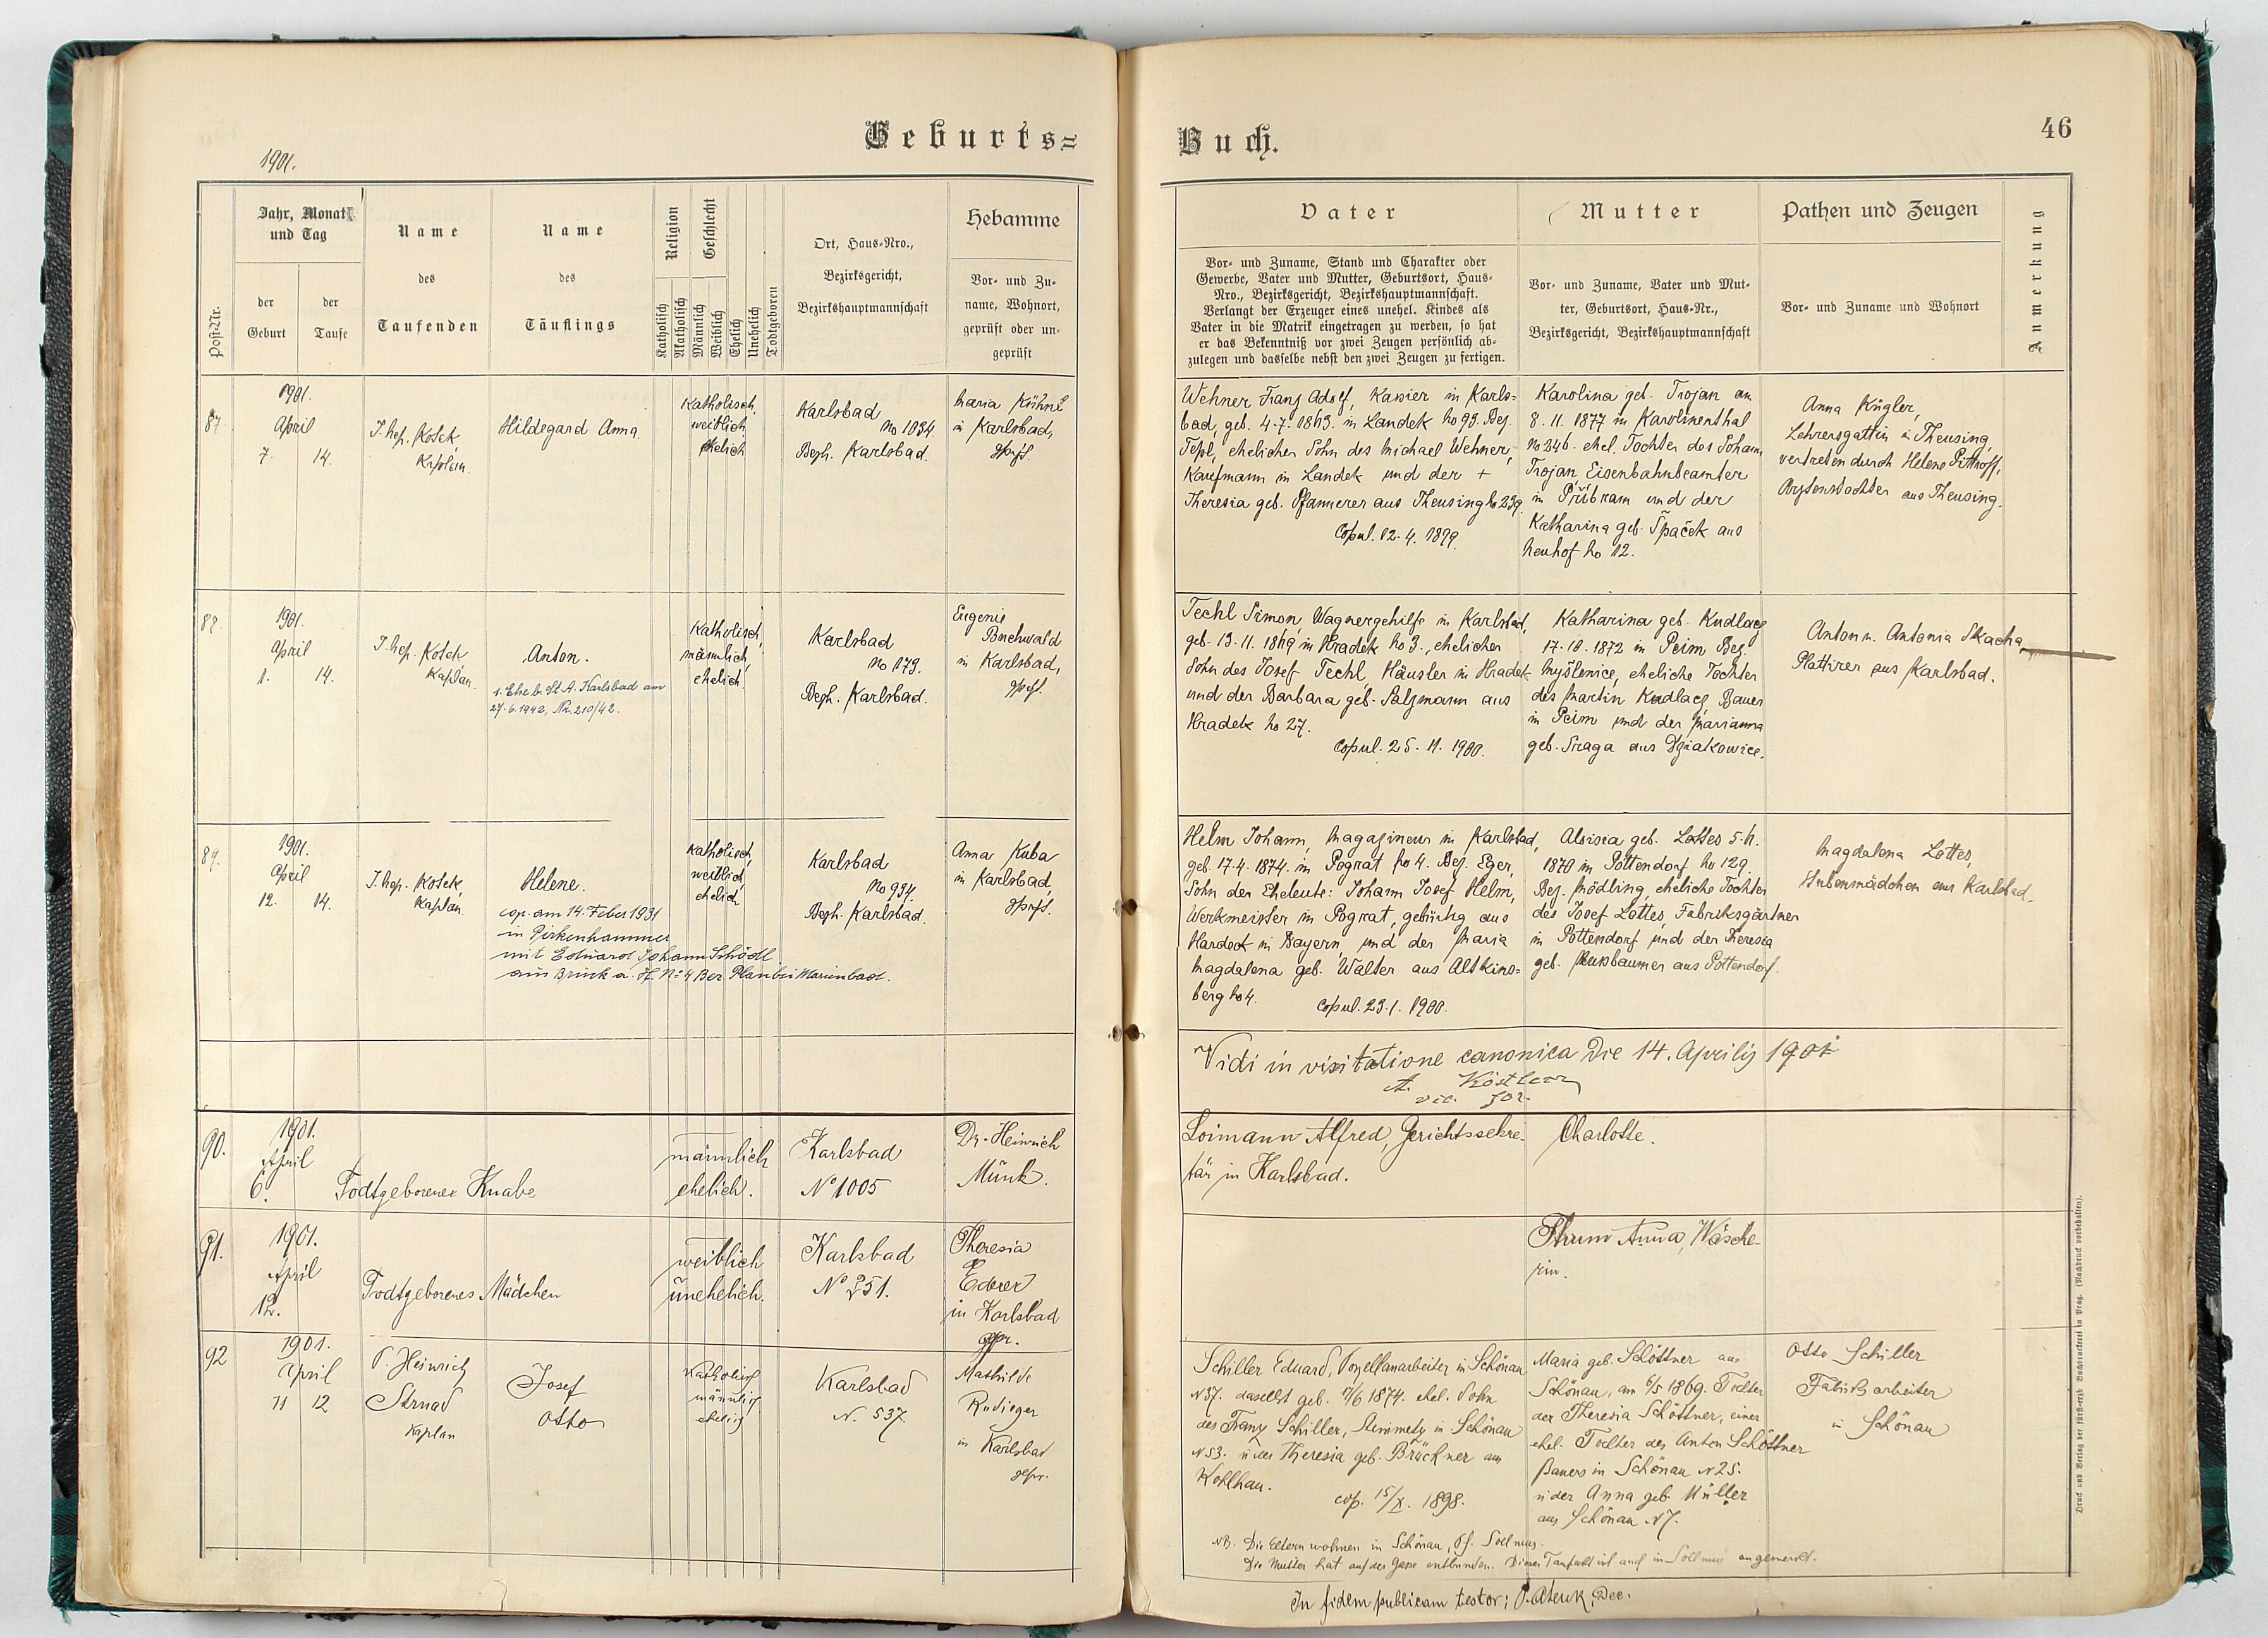 Geburts=
1901.
Post-Nr.
Jahr, Monat
und Tag
der
Geburt
der
Taufe
Name
des
Taufenden
Name
des
Täuflings
Religion
Katholisch
Akatholisch
Geschlecht
Männlich
Weiblich
Ehelich
Unehelich
Todtgeboren
Ort, Haus-Nro.,
Bezirksgericht,
Bezirkshauptmannschaft
Hebamme
Vor- und Zu-
name, Wohnort,
geprüft oder un-
geprüft
87.
1901.
April
7. 14.
J. Nep. Kotek,
Kaplan.
Hildegard Anna.
Katholisch,
weiblich,
ehelich
Karlsbad
No 1034.
Bezh. Karlsbad.
Maria Kühnl
in Karlsbad,
gepft.
88.
1901.
April
1. 14.
J. Nep. Kotek
Kaplan.
Anton.
1. Ehe b. St. A. Karlsbad am
27.6.1942, Nr. 210/42.
Katholisch,
männlich,
ehelich
Karlsbad
No 179.
Bezh. Karlsbad.
Eugenie
Buchwald
in Karlsbad,
gepft.
89.
1901.
April
12. 14.
J. Nep. Kotek,
Kaplan.
Helene.
cop. am 14. Feber 1931
in Pirkenhammer
mit Eduard Johann Schödl
aus Bruck a. H. No 4 Bez. Plan bei Marienbad.
Katholisch,
weiblich,
ehelich
Karlsbad
No 994.
Bezh. Karlsbad.
Anna Kuba
in Karlsbad,
gepft.
90.
1901.
April
6.
Todtgeborener Knabe
männlich
ehelich.
Karlsbad
No 1005
Dr. Heinrich
Münk.
91.
1901.
April
12.
Todtgeborenes Mädchen
weiblich
unehelich.
Karlsbad
No 251.
Theresia
Ederer
in Karlsbad
gepr.
92
1901.
April
11 12
P. Heinrich
Strnad
Kaplan
Josef
Otto
Katholisch
männlich
ehelich
Karlsbad
N. 537.
Mathilde
Rudieger
in Karlsbad
gepr.
Buch.
46
Vater
Vor- und Zuname, Stand und Charakter oder
Gewerbe, Vater und Mutter, Geburtsort, Haus-
Nro., Bezirksgericht, Bezirkshauptmannschaft.
Verlangt der Erzeuger eines unehel. Kindes als
Vater in die Matrik eingetragen zu werden, so hat
er das Bekenntniß vor zwei Zeugen persönlich ab-
zulegen und dasselbe nebst den zwei Zeugen zu fertigen.
Mutter
Vor- und Zuname, Vater und Mut-
ter, Geburtsort, Haus-Nr.,
Bezirksgericht, Bezirkshauptmannschaft
Pathen und Zeugen
Vor- und Zuname und Wohnort
Anmerkung
Wehner Franz Adolf, Kassier in Karls=
bad, geb. 4.7.1863. in Landek No 93. Bez.
Tepl, ehelicher Sohn des Michael Wehner,
Kaufmann in Landek und der +
Theresia geb. Pfannerer aus Theusing No 239.
Copul. 12.4. 1899.
Karolina geb. Trojan am
8. 11. 1877 in Karolinenthal
No 246. ehel. Tochter des Johann
Trojan, Eisenbahnbeamter
in Příbram und der
Katharina geb. Špaček aus
Neuhof No 12.
Anna Kügler,
Lehrersgattin in Theusing,
vertreten durch Helene Pitthoff,
aus Theusing.
Techl Simon, Wagnergehilfe in Karlsbad,
geb. 13.11.1869 in Hradek No 3., ehelicher
Sohn des Josef Techl, Häusler in Hradek
und der Barbara geb. Salzmann aus
Hradek No 27.
Copul. 25. 11. 1900.
Katharina geb. Kudlacz
17.10.1872 in Pcim Bez.
Myślenice, eheliche Tochter
des Martin Kudlacz, Bauer
in Pcim und der Marianna
geb. Sraga aus Dziakowice.
Anton u. Antonia Skacha,
Plattirer aus Karlsbad.
Helm Johann, Magazineur in Karlsbad,
geb. 17.4.1874. in Pograt No 4. Bez. Eger,
Sohn der Eheleute: Johann Josef Helm,
Werkmeister in Pograt, gebürtig aus
Hardeck in Bayern, und der Maria
Magdalena geb. Walter aus Altkins=
berg No 4. Copul. 23.1. 1900.
Aloisia geb. Lottes 5.11.
1870 in Pottendorf No 129.
Bez. Mödling, eheliche Tochter
des Josef Lottes, Fabriksgärtner
in Pottendorf und der Theresia
geb. Nussbaumer aus Pottendorf.
Magdalena Lottes,
Stubenmädchen aus Karlsbad.
Vidi in visitatione canonica Die 14. Aprilis 1901
A. Köstler
vic. for.
Loimann Alfred, Gerichtssekre-
tär in Karlsbad.
Charlotte.
Thrum Anna, Wäsche-
rin.
Schiller Eduard, Porzellanarbeiter in Schönau
N 37. daselbst geb. 11/6 1874. ehel. Sohn
des Franz Schiller, Steinmetz in Schönau
N 53. u. der Theresia geb. Brückner aus
Kohlhau.
cop. 15/X. 1898.
Maria geb. Schöttner aus
Schönau, am 6/5 1869. Tochter
der Theresia Schöttner, einer
ehel. Tochter des Anton Schöttner
Bauers in Schönau N 25.
u. der Anna geb. Müller
aus Schönau N 7.
Otto Schiller
Fabriksarbeiter
in Schönau
NB. Die Eltern wohnen in Schönau, Pf. Sollmus.
Die Mutter hat auf der Gasse entbunden. Dieser Taufakt ist auch in Sollmus angemerkt.
In fidem publicam testor: Dec.
Druck und Verlag der fürst-erzb. Buchdruckerei in Prag. (Nachdruck vorbehalten).